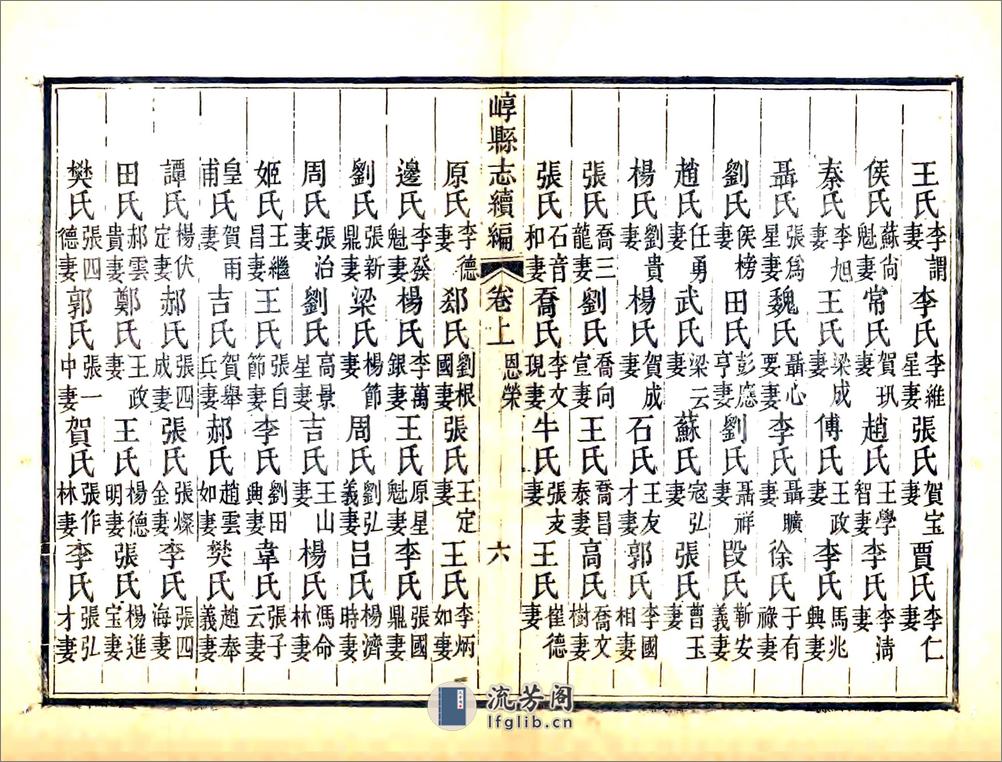 王氏李謂妻李氏李維星妻張氏賀宝妻賈氏李仁妻
侯氏蘇尚魁妻常氏賀玑妻趙氏王學智妻李氏李清妻
秦氏李旭妻王氏梁成妻傅氏王政妻李氏馬兆興妻
聶氏張爲星妻魏氏聶心要妻李氏聶曠妻徐氏于有祿妻
劉氏侯榜妻田氏彭應亨妻劉氏聶祥妻段氏靳安義妻
趙氏任勇妻武氏梁云妻蘇氏寇弘妻張氏曹玉妻
楊氏劉貴妻楊氏賀成妻石氏王友才妻郭氏李國相妻
張氏喬三龍妻劉氏喬向宣妻王氏喬昌泰妻高氏喬文樹妻
張氏石音和妻喬氏李文現妻牛氏張支妻王氏崔德妻
崞縣志續編 卷上 恩榮 六
原氏李德妻郄氏劉根國妻張氏王定妻王氏李炳如妻
邊氏李發魁妻楊氏李萬銀妻王氏原星魁妻李氏張國鼎妻
劉氏張新鼎妻梁氏楊節妻周氏劉弘義妻呂氏楊濟時妻
周氏張治妻劉氏高景星妻吉氏王山妻楊氏馮命林妻
姬氏王繼昌妻王氏張自節妻李氏劉田興妻韋氏張子云妻
皇甫氏賀雨妻吉氏賀舉兵妻郝氏趙雲如妻樊氏趙奉義妻
譚氏楊伏定妻郝氏張四成妻張氏張燦金妻李氏張四海妻
田氏郝雲貴妻鄭氏王政妻王氏楊德明妻張氏楊進宝妻
樊氏張四德妻郭氏張一中妻賀氏張作林妻李氏張弘才妻
流芳阁
lfglib.cn